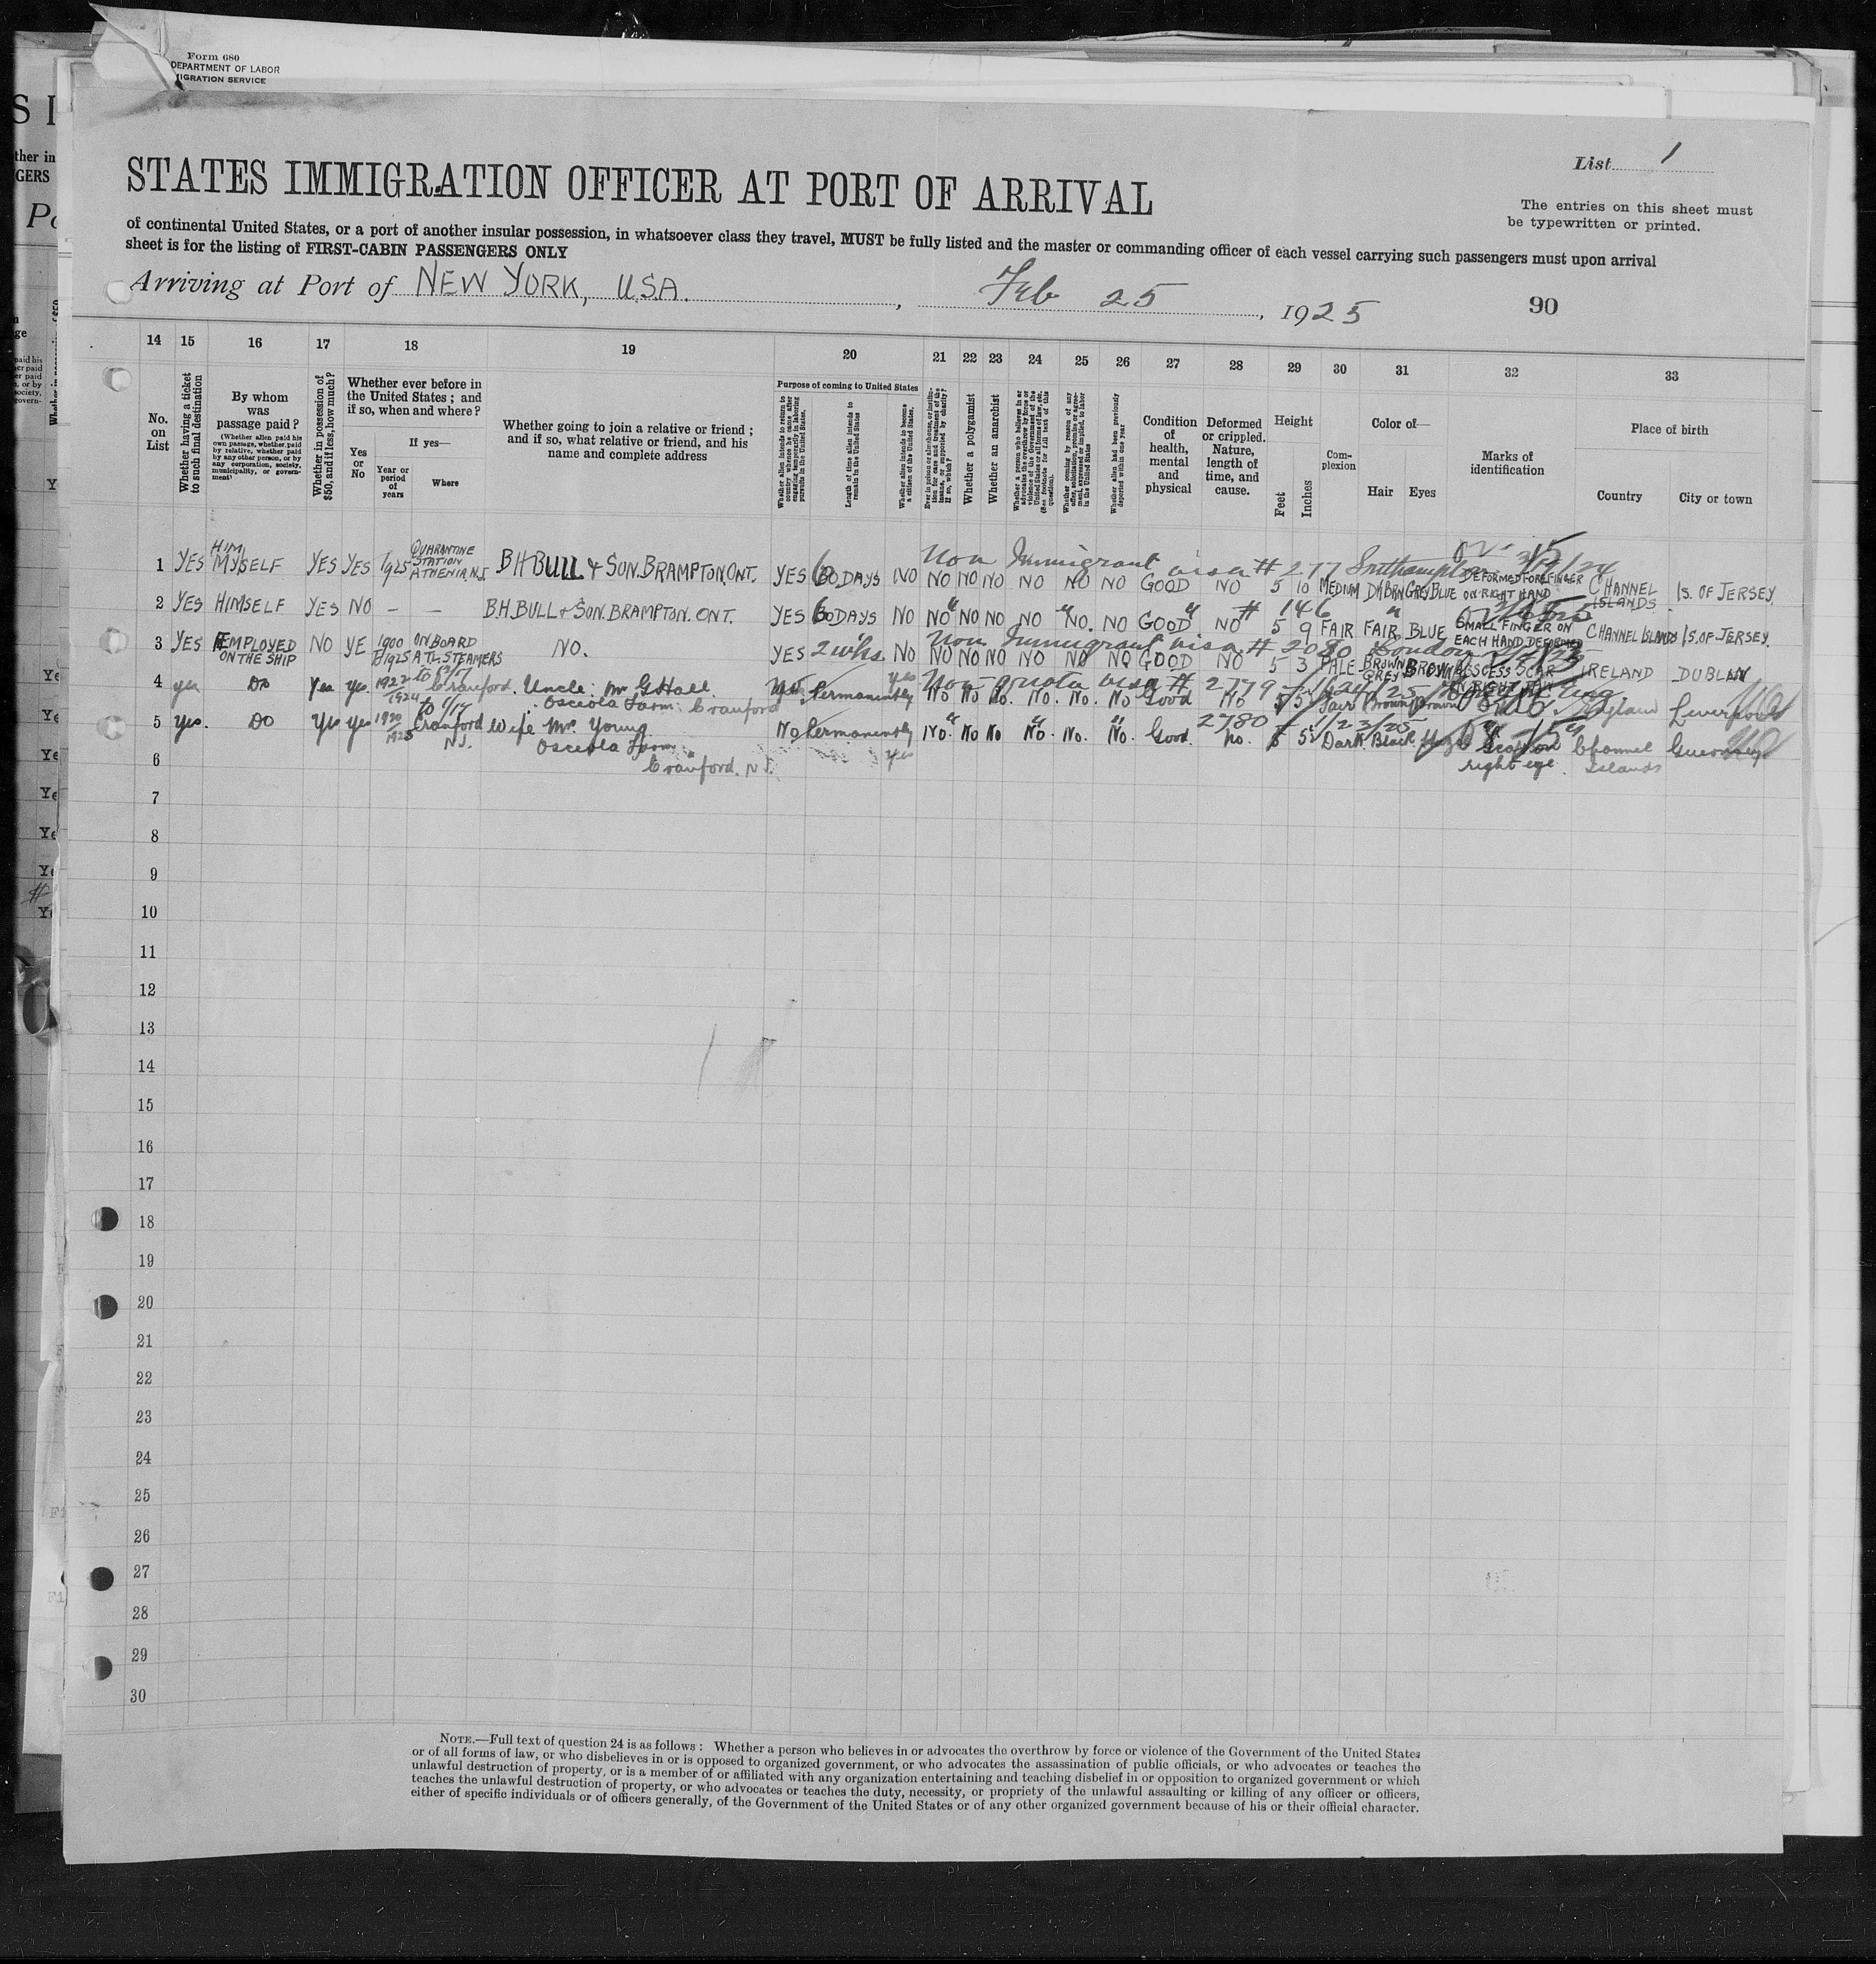 Form 680
DEPARTMENT OF LABOR
MIGRATION SERVICE
List 1
STATES IMMIGRATION OFFICER AT PORT OF ARRIVAL
The entries on this sheet must
be typewritten or printed.
of continental United States, or a port of another insular possession, in whatsoever class they travel, MUST be fully listed and the master or commanding officer of each vessel carrying such passengers must upon arrival
sheet is for the listing of FIRST-CABIN PASSENGERS ONLY
Arriving at Port of NEW YORK, U.S.A. , Feb 25, 1925
90
14 15 16 17 18 19 20 21 22 23 24 25 26 27 28 29 30 31 32 33
No. on List
Whether having a ticket to such final destination
By whom was passage paid?
(Whether alien paid his own passage, whether paid by relative, whether paid by any other person, or by any corporation, society, municipality, or government)
Whether in possession of $50, and if less, how much?
Whether ever before in the United States; and if so, when and where?
Yes or No
If yes—
Year or period of years
Where
Whether going to join a relative or friend; and if so, what relative or friend, and his name and complete address
Purpose of coming to United States
Whether alien intends to return to country whence he came after engaging temporarily in laboring pursuits in the United States.
Length of time alien intends to remain in the United States
Whether alien intends to become a citizen of the United States.
Ever in prison or almshouse, or institution for care and treatment of the insane, or supported by charity? If so, which?
Whether a polygamist
Whether an anarchist
Whether a person who believes in or advocates the overthrow by force or violence of the Government of the United States or all forms of law, etc. (See footnote for full text of this question).
Whether coming by reason of any offer, solicitation, promise, or agreement, expressed or implied, to labor in the United States
Whether alien had been previously deported within one year
Condition of health, mental and physical
Deformed or crippled. Nature, length of time, and cause.
Height
Feet
Inches
Complexion
Color of—
Hair
Eyes
Marks of identification
Place of birth
Country
City or town
Non Immigrant visa # 277 Southampton
1 YES HIM MYSELF YES YES 1925 QUARANTINE STATION ATHENIA N.J. B H BULL & SON. BRAMPTON, ONT. YES 60 DAYS NO NO NO NO NO NO NO GOOD NO 5 10 MEDIUM DK BRN GREY BLUE DEFORMED FOREFINGER ON RIGHT HAND CHANNEL ISLANDS IS. OF JERSEY
" " " # 146 "
2 YES HIMSELF YES NO – – B.H. BULL & SON. BRAMPTON. ONT. YES 60 DAYS NO NO NO NO NO NO. NO GOOD NO 5 9 FAIR FAIR BLUE SMALL FINGER ON EACH HAND DEFORMED CHANNEL ISLANDS IS. OF JERSEY.
Non Immigrant visa # 2080 London
3 YES EMPLOYED ON THE SHIP NO YE 1900 to 1925 ON BOARD ATL. STEAMERS NO. YES 2 wks. NO NO NO NO NO NO NO GOOD NO 5 3 PALE BROWN GREY BROWN ABSCESS SCAR ON RIGHT IRELAND DUBLIN
Non-quota visa # 2779 - 1/24/25
4 yes Do Yes yes 1922 1924 Cranford. Uncle: Mr G Hall. Osceola Farm. Cranford No. Permanently yes No No No. No. No. No Good No 5 5 Fair Brown Brown England Liverpool
" " " 2780 - 1/23/25
5 yes. Do Yes yes 1920 1925 Cranford N.J. Wife Mrs. Young Osceola Farm Cranford. N.J. No Permanently yes No. No No No. No. No. Good. No. 5 5 Dark. Black. Scar on right eye Channel Islands Guernsey
6
7
8
9
10
11
12
13
14
15
16
17
18
19
20
21
22
23
24
25
26
27
28
29
30
NOTE.—Full text of question 24 is as follows: Whether a person who believes in or advocates the overthrow by force or violence of the Government of the United States
or of all forms of law, or who disbelieves in or is opposed to organized government, or who advocates the assassination of public officials, or who advocates or teaches the
unlawful destruction of property, or is a member of or affiliated with any organization entertaining and teaching disbelief in or opposition to organized government or which
teaches the unlawful destruction of property, or who advocates or teaches the duty, necessity, or propriety of the unlawful assaulting or killing of any officer or officers,
either of specific individuals or of officers generally, of the Government of the United States or of any other organized government because of his or their official character.